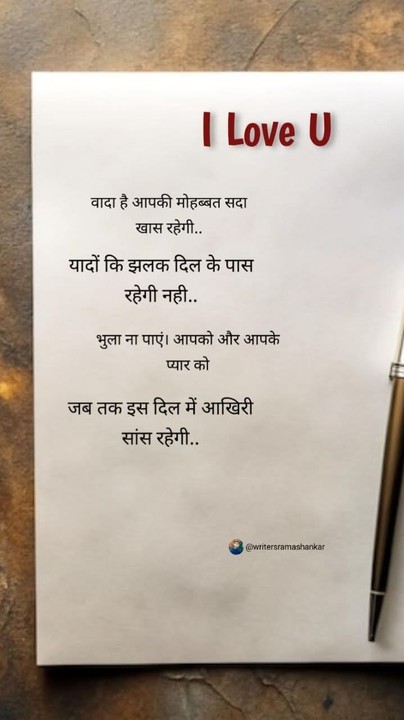 I Love U
वादा है आपकी मोहब्बत सदा
खास रहेगी..
यादों कि झलक दिल के पास
रहेगी नही..
भुला ना पाएं। आपको और आपके
प्यार को
जब तक इस दिल में आखिरी
सांस रहेगी..
@writersramashankar